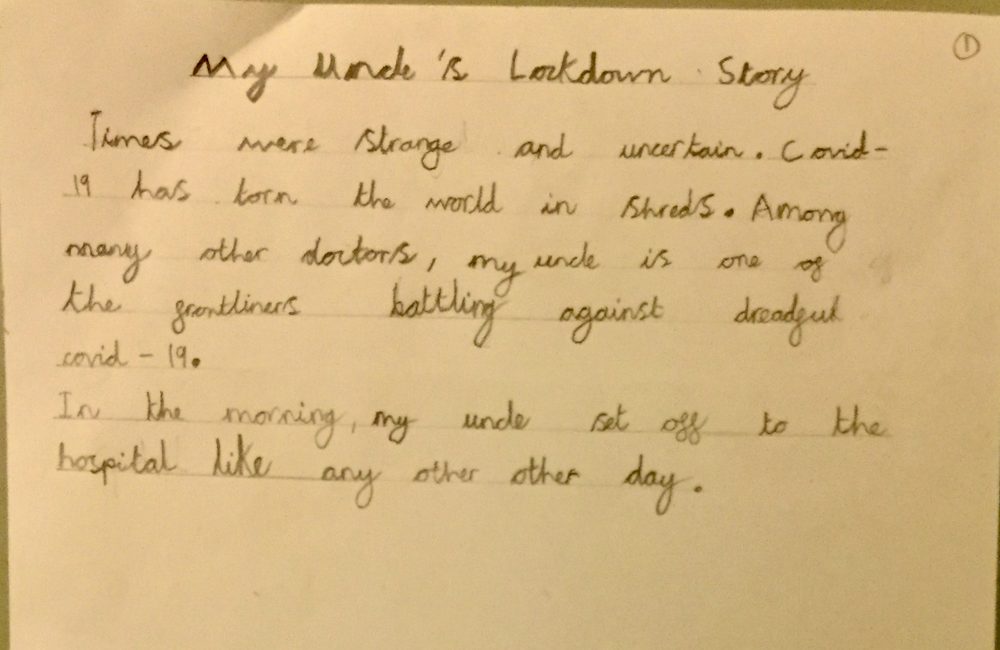 1
My Uncle's Lockdown Story
Times were strange and uncertain. Covid-
19 has torn the world in shreds. Among
many other doctors, my uncle is one of
the frontliners battling against dreadful
covid-19.
In the morning, my uncle set off to the
hospital like any other other day.